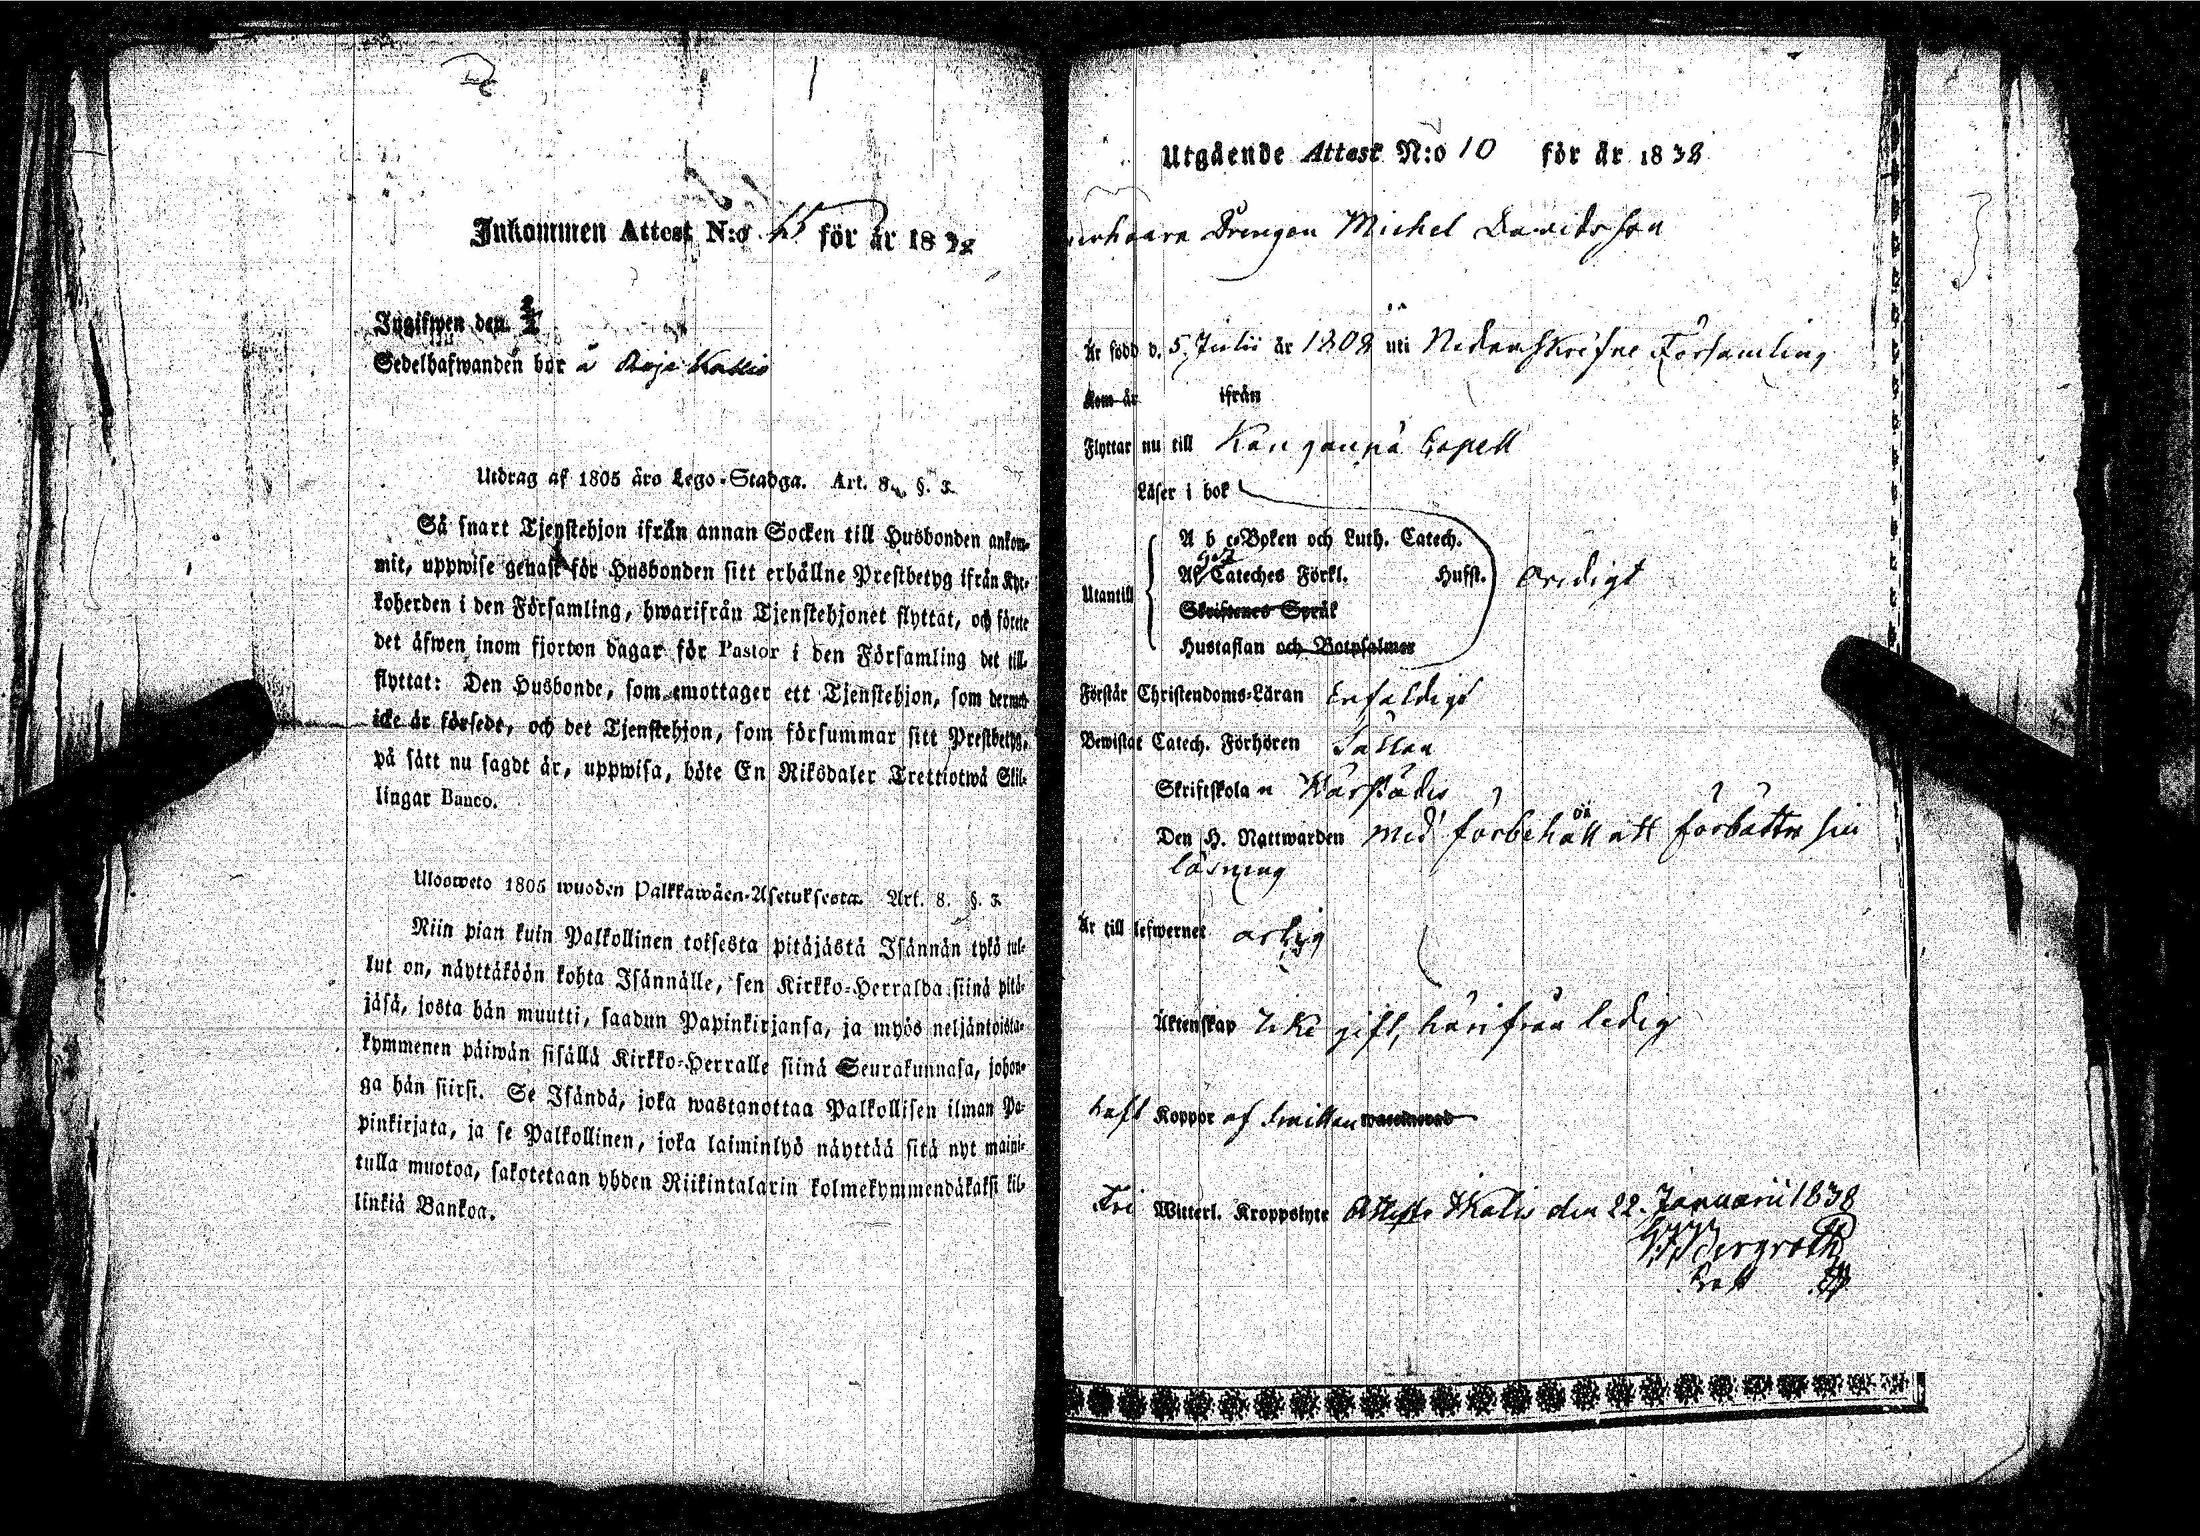 Inkommen Attest N:o 45 för år 1838
Ingifwen den
Sedelhafwanden bor å
Utdrag af 1805 års Lego-Stadga. Art. 8. §. 3.
Så snart Tjenstehjon ifrån annan Socken till Husbonden ankom-
mit, uppwise genast för Husbonden sitt erhållne Prestbetyg ifrån Kyr-
koherden i den Församling, hwarifrån Tjenstehjonet flyttat, och förete
det äfwen inom fjorton dagar för Pastor i den Församling det till-
flyttat: Den Husbonde, som emottager ett Tjenstehjon, som dermed
icke är försedt, och det Tjenstehjon, som försummar sitt Prestbetyg,
på sätt nu sagdt är, uppwisa, böte En Riksdaler Trettiotwå Skil-
lingar Banco.
Uloosweto 1805 wuoden Palkkawäen-Asetuksesta. Art. 8. §. 3.
Niin pian kuin Palkollinen toisesta pitäjästä Isännän tykö tul-
lut on, näyttäköön kohta Isännälle, sen Kirkko-Herralda siinä pitä-
jäsä, josta hän muutti, saadun Papinkirjansa, ja myös neljäntoista-
kymmenen päiwän sisällä Kirkko-Herralle siinä Seurakunnasa, johon-
ga hän siirsi. Se Isändä, joka wastanottaa Palkollisen ilman Pa-
pinkirjata, ja se Palkollinen, joka laiminlyö näyttää sitä nyt maini-
tulla muotoa, sakotetaan yhden Riikintalarin kolmekymmendäkaksi kil-
linkiä Bankoa.
Utgående Attest N:o 10 för år 1838
Drengen Michel Davidsson
Är född d. 5 Julii år 1808 uti Nedanskrifne Församling
Kom år ifrån
Flyttar nu till Kanganpä Capell
Läser i bok
Utantill
A b c-Boken och Luth. Catech.
Af Cateches Förkl. Hufst. oredigt
Skriftenes Språk
Hustaflan och Botpsalmer
Förstår Christendoms-Läran Enfaldigt
Bewistat Catech. Förhören Sällan
Skriftskolan Wårstädes
Den H. Nattwarden med förbehåll att förbättra sin
läsning
Är till lefwernet ärlig
Äktenskap Icke gift, härifrån ledig
haft Koppor af smittan waccinerad
Fri Witterl. Kroppslyte Attest. Ikalis den 22. Januarii 1838
Bergroth